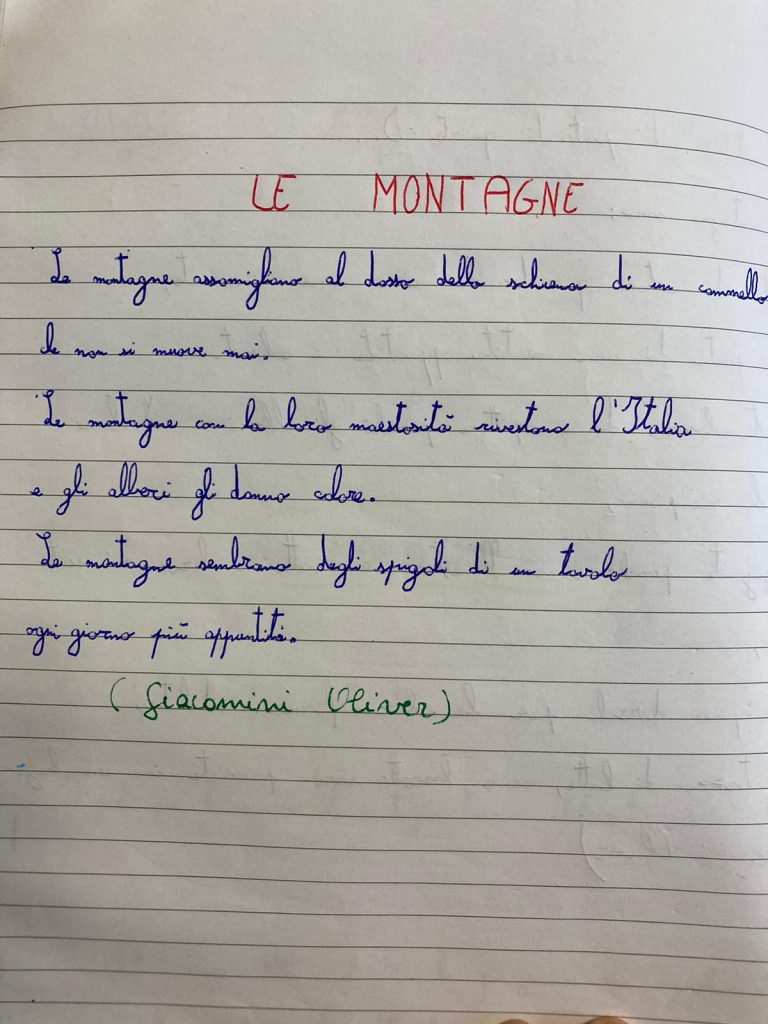 LE MONTAGNE
Le montagne assomigliano al dosso della schiena di un cammello
che non si muove mai.
Le montagne con la loro maestosità rivestono l'Italia
e gli alberi gli danno colore.
Le montagne sembrano degli spigoli di un tavolo
ogni giorno più appuntiti.
(Giacomini Oliver)